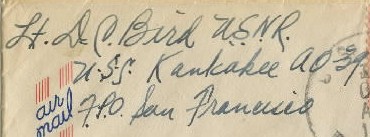 Lt. D. C. Bird U.S.N.R.
U.S.S. Kankakee AO-39
air mail
F.P.O. San Francisco